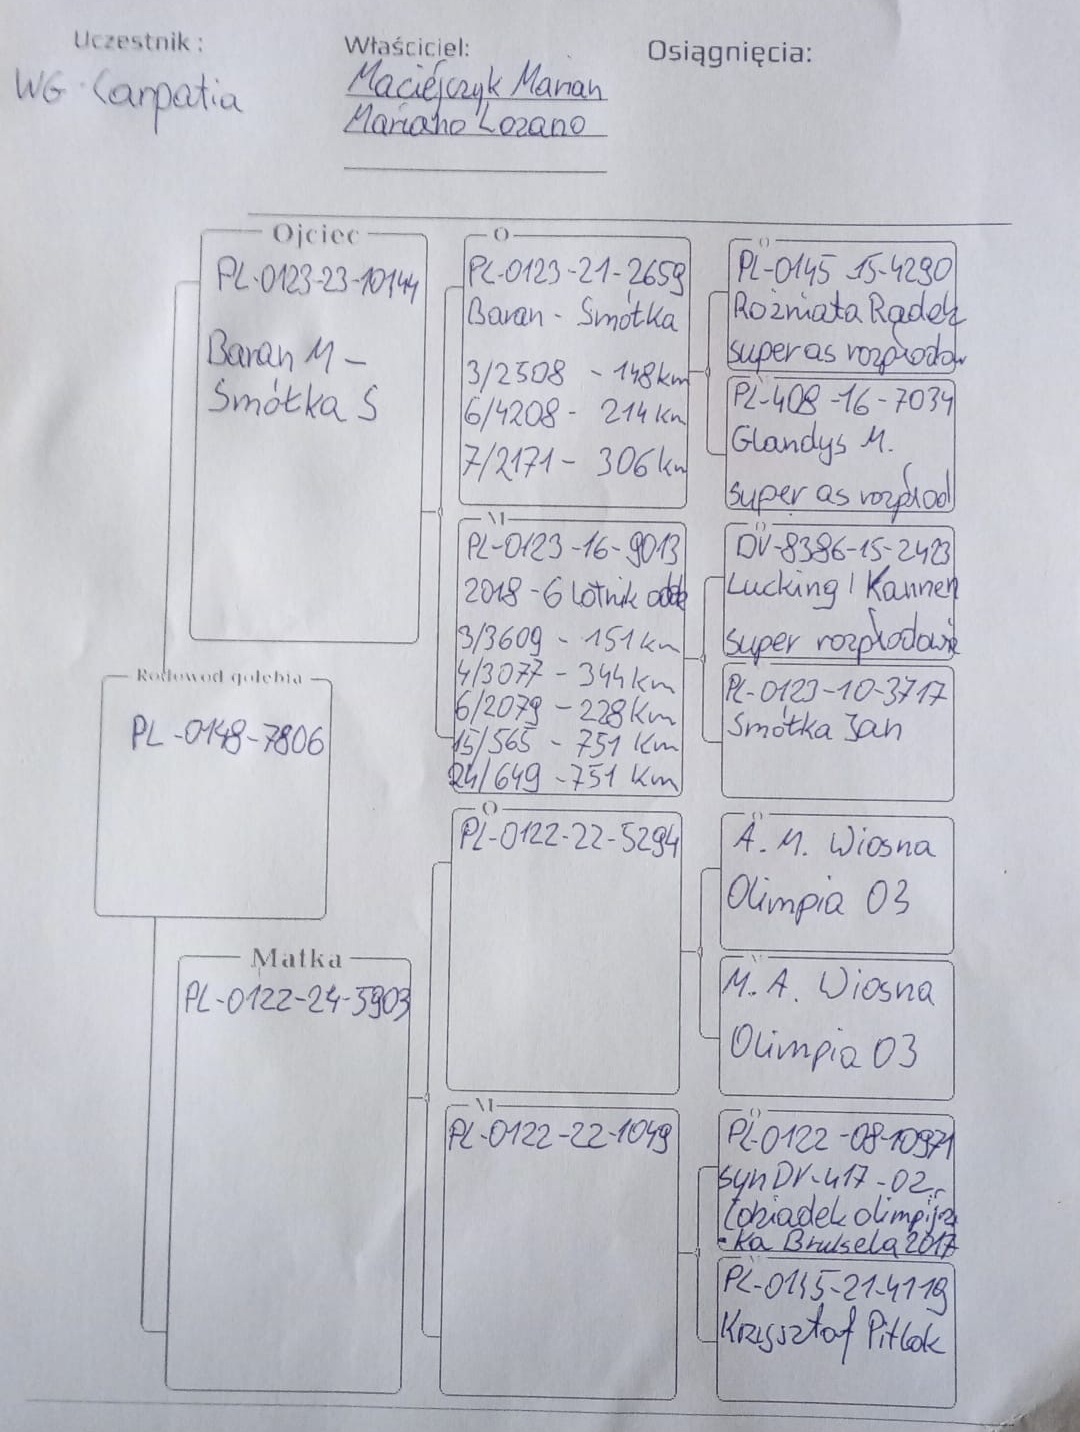 Uczestnik :
WG Carpatia
Właściciel:
Maciejczyk Marian
Mariano Lozano
Osiągnięcia:
Ojciec
PL-0123-23-10144
Baran M -
Smółka S
O
PL-0123-21-2659
Baran - Smółka
3/2508 - 148km
6/4208 - 214 km
7/2171 - 306 km
M
PL-0123-16-9013
2018 - 6 Lotnik
3/3609 - 151 km
4/3077 - 344 km
6/2079 - 228 Km
15/565 - 751 Km
24/649 - 751 Km
O
PL-0145 15-4290
Rozmiata Radek
super as rozpłodow
PL-408-16-7034
Glandys M.
super as rozpłod
O
DV-8386-15-2423
Lucking / Kannen
super rozpłodowie
PL-0123-10-3717
Smółka Jan
Rodowód gołębia
PL-0148-7806
Matka
PL-0122-24-5903
O
PL-0122-22-5294
M
PL-0122-22-1049
O
A. M. Wiosna
Olimpia 03
M. A. Wiosna
Olimpia 03
O
PL-0122-08-10971
syn DV-417-02
(dziadek olimpijcz
-ka Bruksela 2017
PL-0145-21-4119
Krzysztof Pitlok